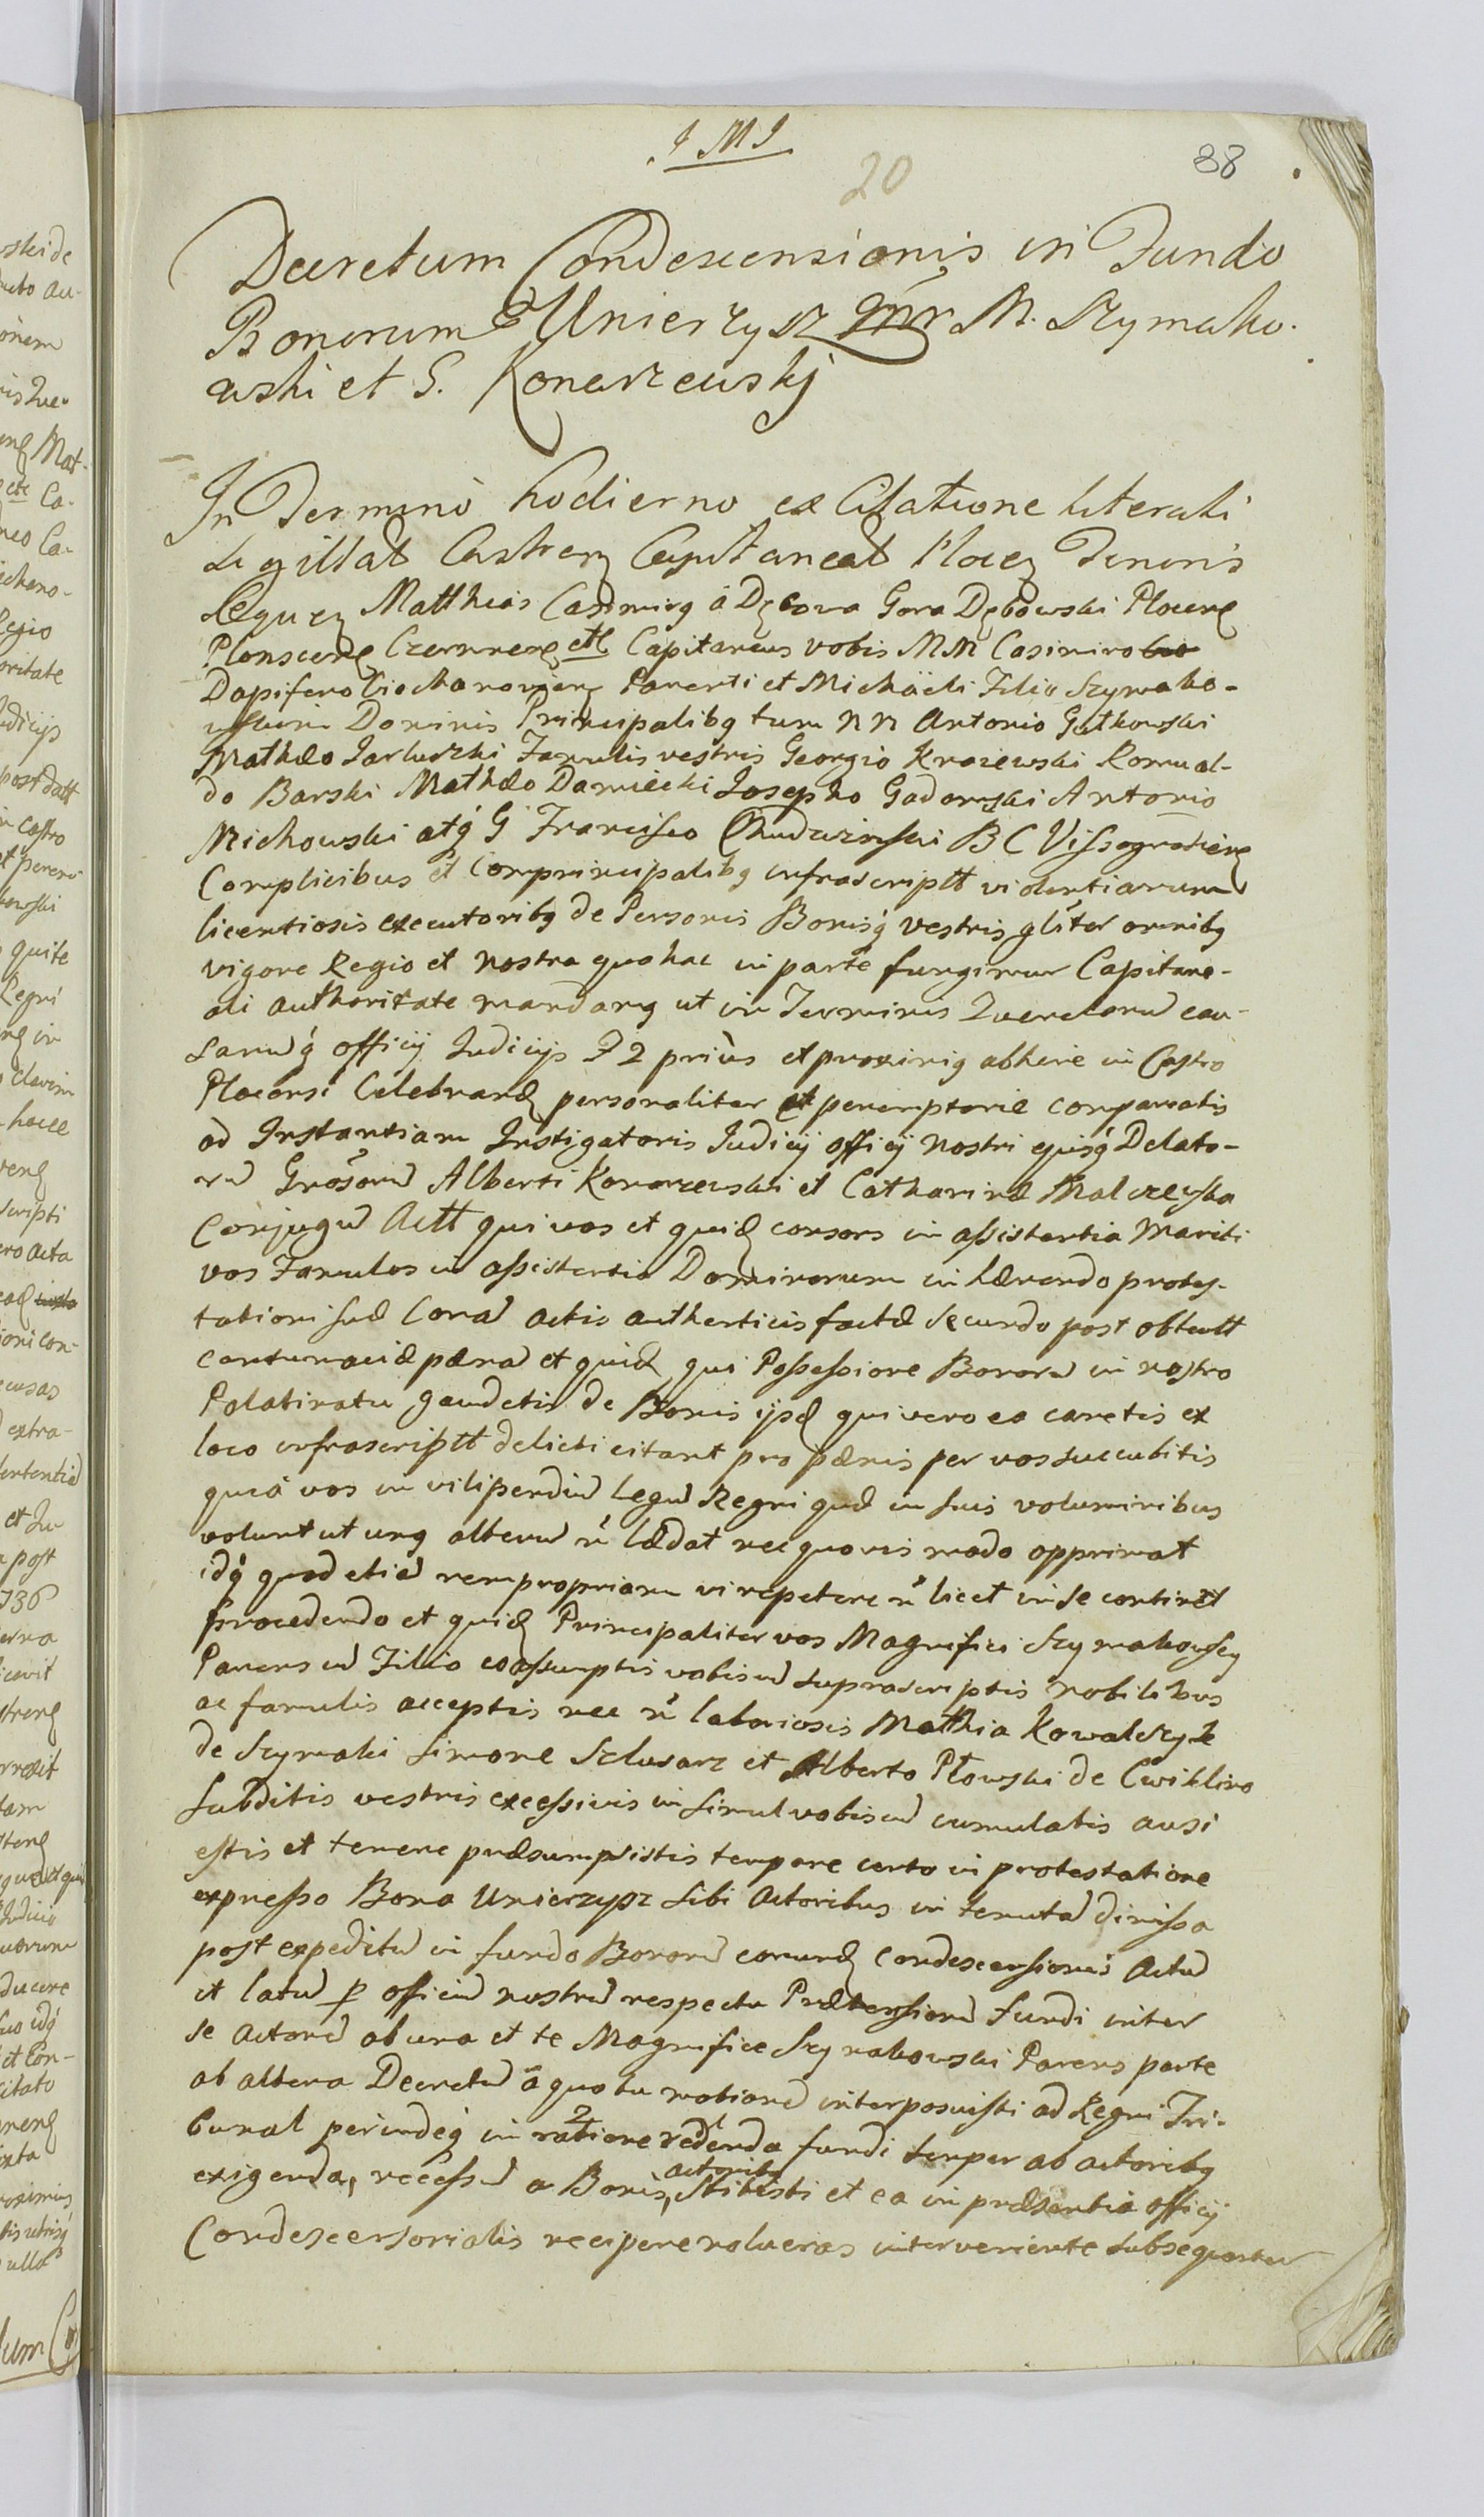 J M J
20
88
Decretum Condescensionis in Fundo
Bonorum Unierzysz int̃r M. Szymako-
wski et G. Konarzewskj
In Termino hodierno ex Citatione literali
Sigillat Castreñ Capitaneal Ploceñ Tenoris
Sequeñ Matthias Casimirꝯ á Dębowa Gora Dębowski Plocens
Plonscens Czernnens etc Capitaneus vobis MM Casimiro
Dapifero Ciechanovieñ Parenti et Michaeli Filio Szymako-
wskim Dominis Principalibꝯ tum NN Antonio Gutkowski
Mathæo Jarluzki Famulis vestris Georgio Kraiewski Romual-
do Barski Mathæo Damiecki Josepho Gadomski Antonio
Michowski atq́ G Francisco Chudzinski B C Vissogradiens
Complicibus et Comprincipalibꝯ infrascriptt violentiarum
licentiosis executoribꝯ de Personis Bonisq́ vestris gñliter omnibꝯ
vigore Regio et nostra qua hac in parte fungimur Capitane-
ali authoritate mandamꝯ ut in Terminis Querelarũ cau-
sarũq́ officij Judicijs F 2 prius et proximiꝯ abhinc in Castro
Plocensi Celebrand personaliter et peremptorie compareatis
ad Instantiam Instigatoris Judicij officij nostri ejusq́ Delato-
rũ Grosorũ Alberti Konarzewski et Catharinæ Malczewska
Conjugũ Actt qui vos et quid consors in assistentia Mariti
vos Famulos in assistentia Dominorum inhærendo protes-
tationi suæ Corã actis authenticis factæ secundo post obtentt
contumaciæ pænã et quid qui Possessione Bonorũ in nostro
Palatinatu gaudetis de Bonis ijsd qui vero ea caretis ex
loco infrascriptt delicti citant pro pænis per vos succubitis
quia vos in vilipendiũ legũ Regni quæ in suis voluminibus
volunt ut unꝯ alterũ ñ lædat nec quovis modo opprimat
idq́ quod etiã rem propriam vi repetere ñ licet in se continet
procedendo et quid Principaliter vos Magnifici Szymakowscy
Parens cũ Filio coassumptis vobiscũ suprascriptis nobilibus
ac famulis acceptis nec ñ laboriosis Matthia Kowalczyk
de Szymaki Simone Szlusarz et Alberto Płowski de Cwiklino
subditis vestris excessivis in simul vobiscũ cumulatis ausi
estis et temere præsumpsistis tempore certo in protestatione
expresso Bona Unierzysz sibi Actoribus in tenutã dimissa
post expeditũ in fundo Bonorũ eorund Condescensionis Actũ
et latũ p officiũ nostrũ respectu Prætensionũ fundi inter
se Actores ab una et te Magnifice Szymakowski Parens parte
ab altera Decretũ a quo tu motionẽ interposuisti ad Regni Tri-
bunal perindeq́ in ratione reddenda fundi semper ab actoribꝯ
exigenda, recessũ a Bonis, actoribꝯ stitisti et ea in præsentia officij
Condescensorialis recipere nolueras interveniente subsequenter